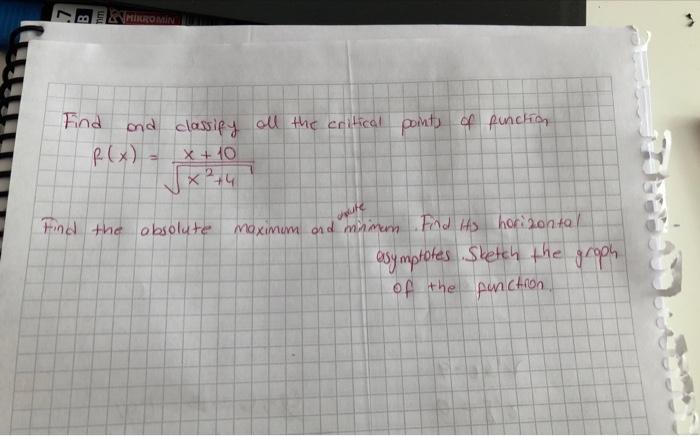 7
B
MIKROMIN
Find and classify all the critical points of function
f(x) = x + 10
√x²+4
Find the absolute maximum and minimum. Find its horizontal
asymptotes. Sketch the graph
of the function.